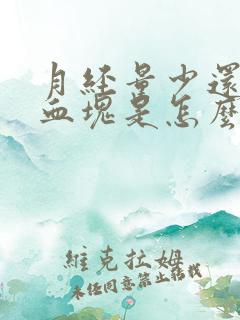 月經量少還
血塊是怎麼
維克拉姆
未經同意禁止轉載